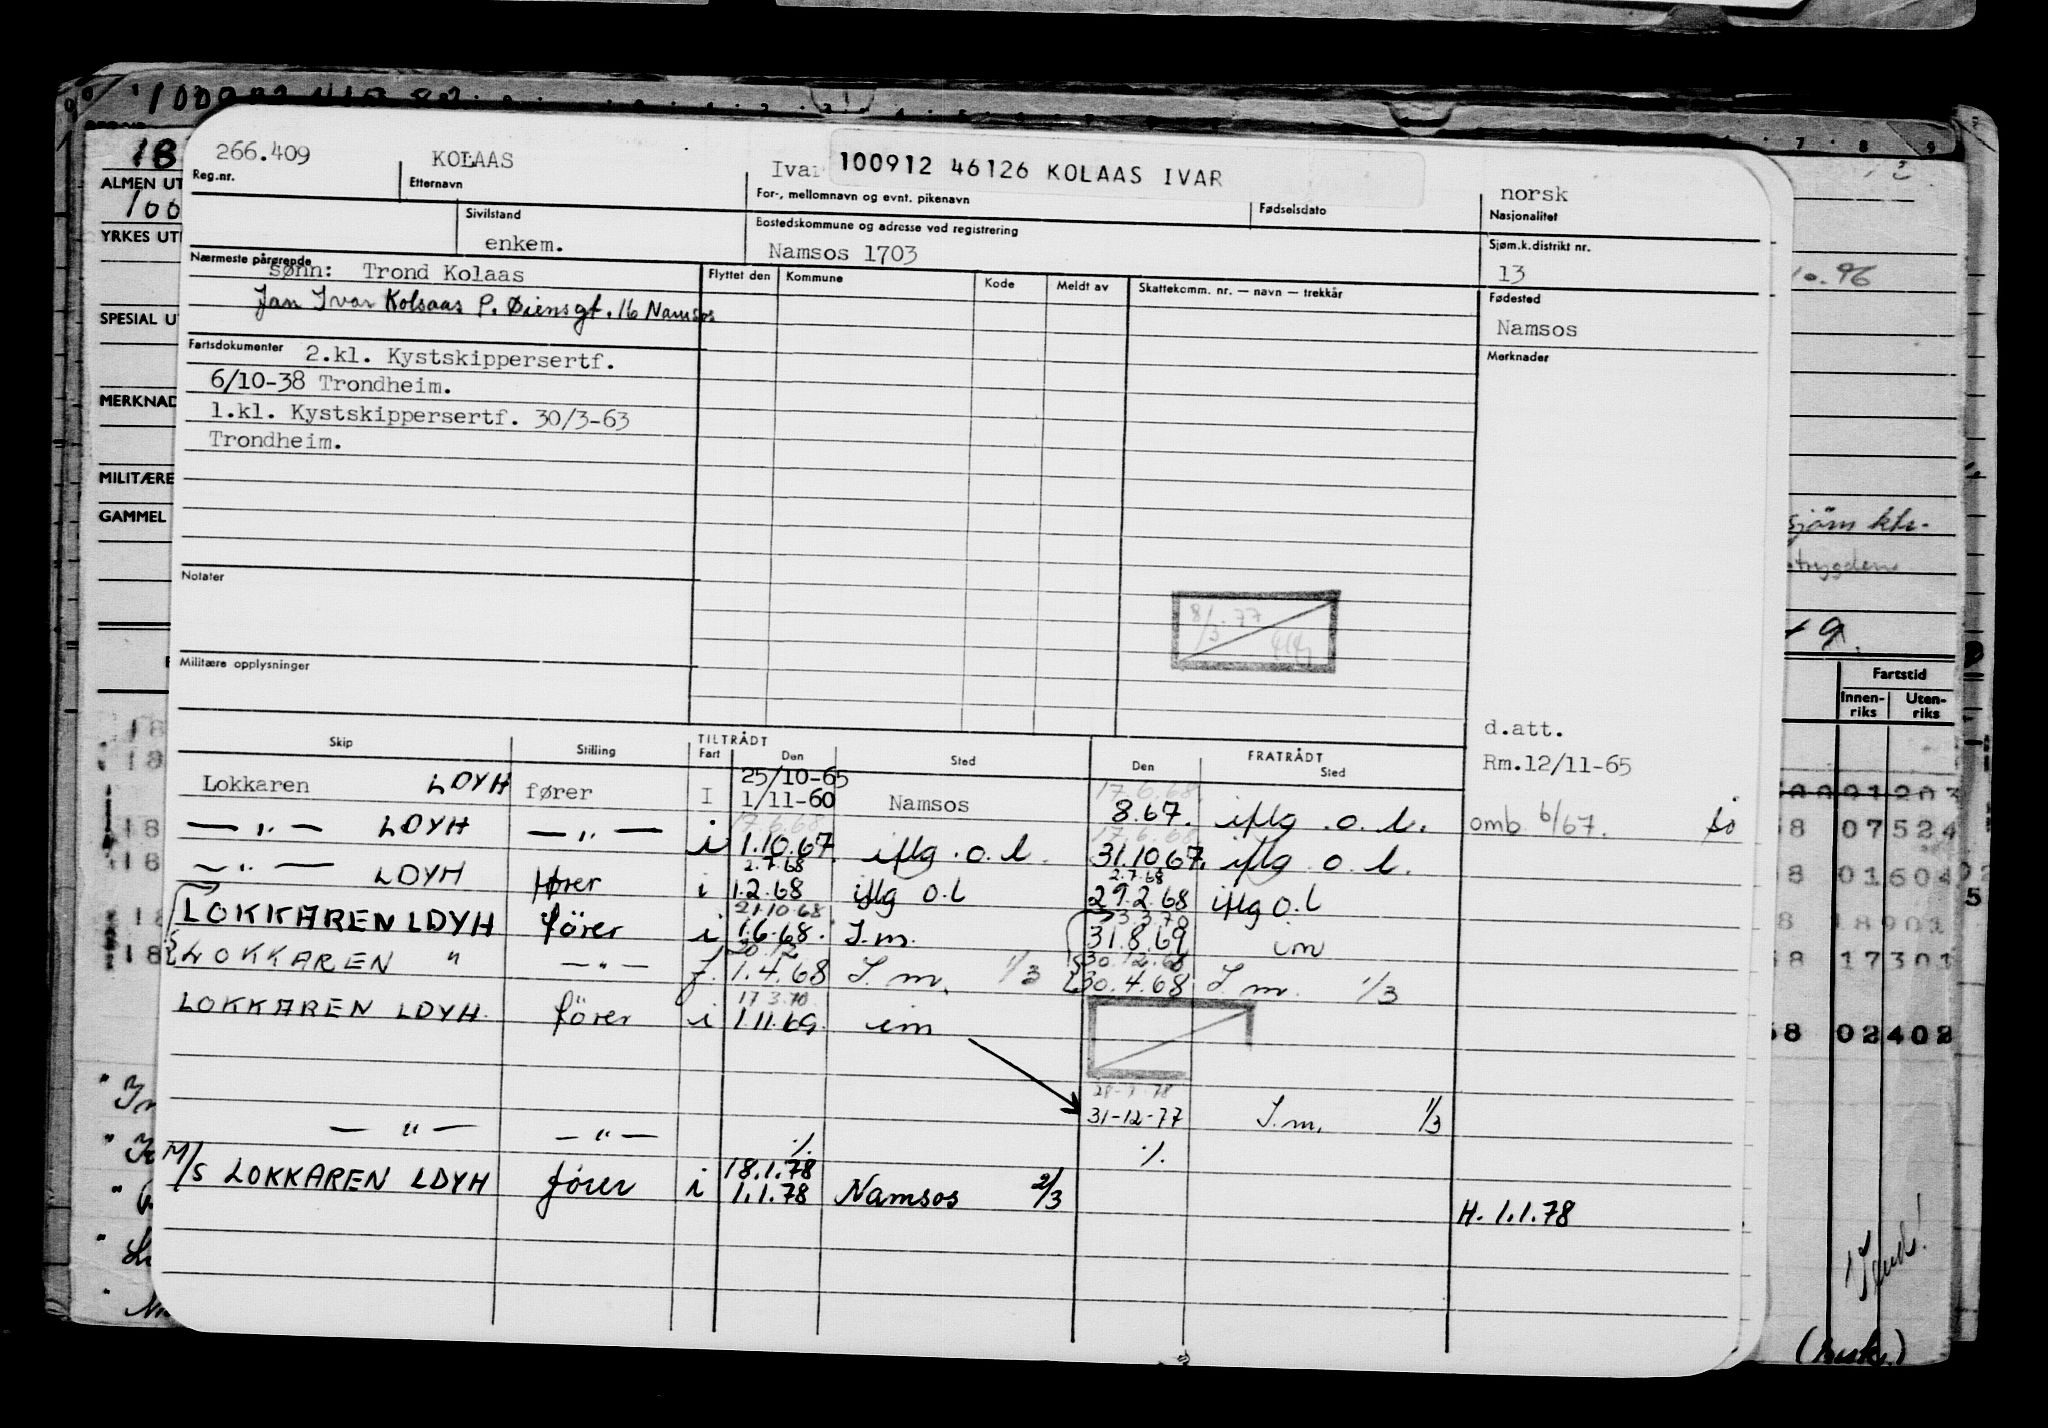 266.409 KOLAAS Ivar 100912 46126 KOLAAS IVAR norsk
Reg.nr. Etternavn For-, mellomnavn og evnt. pikenavn Fødselsdato Nasjonalitet
Sivilstand Bostedskommune og adresse ved registrering Sjøm.k.distrikt nr.
enkem. Namsos 1703 13
Nærmeste pårørende Flyttet den Kommune Kode Meldt av Skattekomm. nr. — navn — trekkår Fødested
sønn: Trond Kolaas Namsos
Jan Ivar Kolsaas P. Øiensgt. 16 Namsos
Merknader
Fartsdokumenter 2.kl. Kystskippersertf.
6/10-38 Trondheim.
1.kl. Kystskippersertf. 30/3-63
Trondheim.
Notater
8/3.77
Militære opplysninger
d.att.
Rm.12/11-65
Skip Stilling TILTRÅDT FRATRÅDT
Fart Den Sted Den Sted
25/10-65 17.6.68.
Lokkaren LDYH fører I 1/11-60 Namsos 8.67. iflg. o. l. omb 6/67.
17.6.68 17.6.68
— " — LDYH — " — i 1.10.67. iflg. o. l. 31.10.67. iflg. o. l.
2.7.68 2.7.68
— " — LDYH fører i 1.2.68 iflg o.l 29.2.68 iflg o.l
21.10.68 3.3.70
LOKKAREN LDYH fører i 1.6.68. I.m. 31.8.69 im
30.12 30.12.68
LOKKAREN " — " — f. 1.4.68 I.m. 1/3 30.4.68 I.m. 1/3
17.3.70.
LOKKAREN LDYH. fører i 1.11.69. im
31-12-77 I.m. 1/3
— " — — " — ./. ./.
18.1.78
M/S LOKKAREN LDYH fører i 1.1.78 Namsos 2/3
H. 1.1.78
ALMEN UT
YRKES UT
SPESIAL U
MERKNAD
MILITÆRE
GAMMEL
sjøm ktr.
Fartstid
Innen-riks Uten-riks
07524
01604
18901
17301
02402